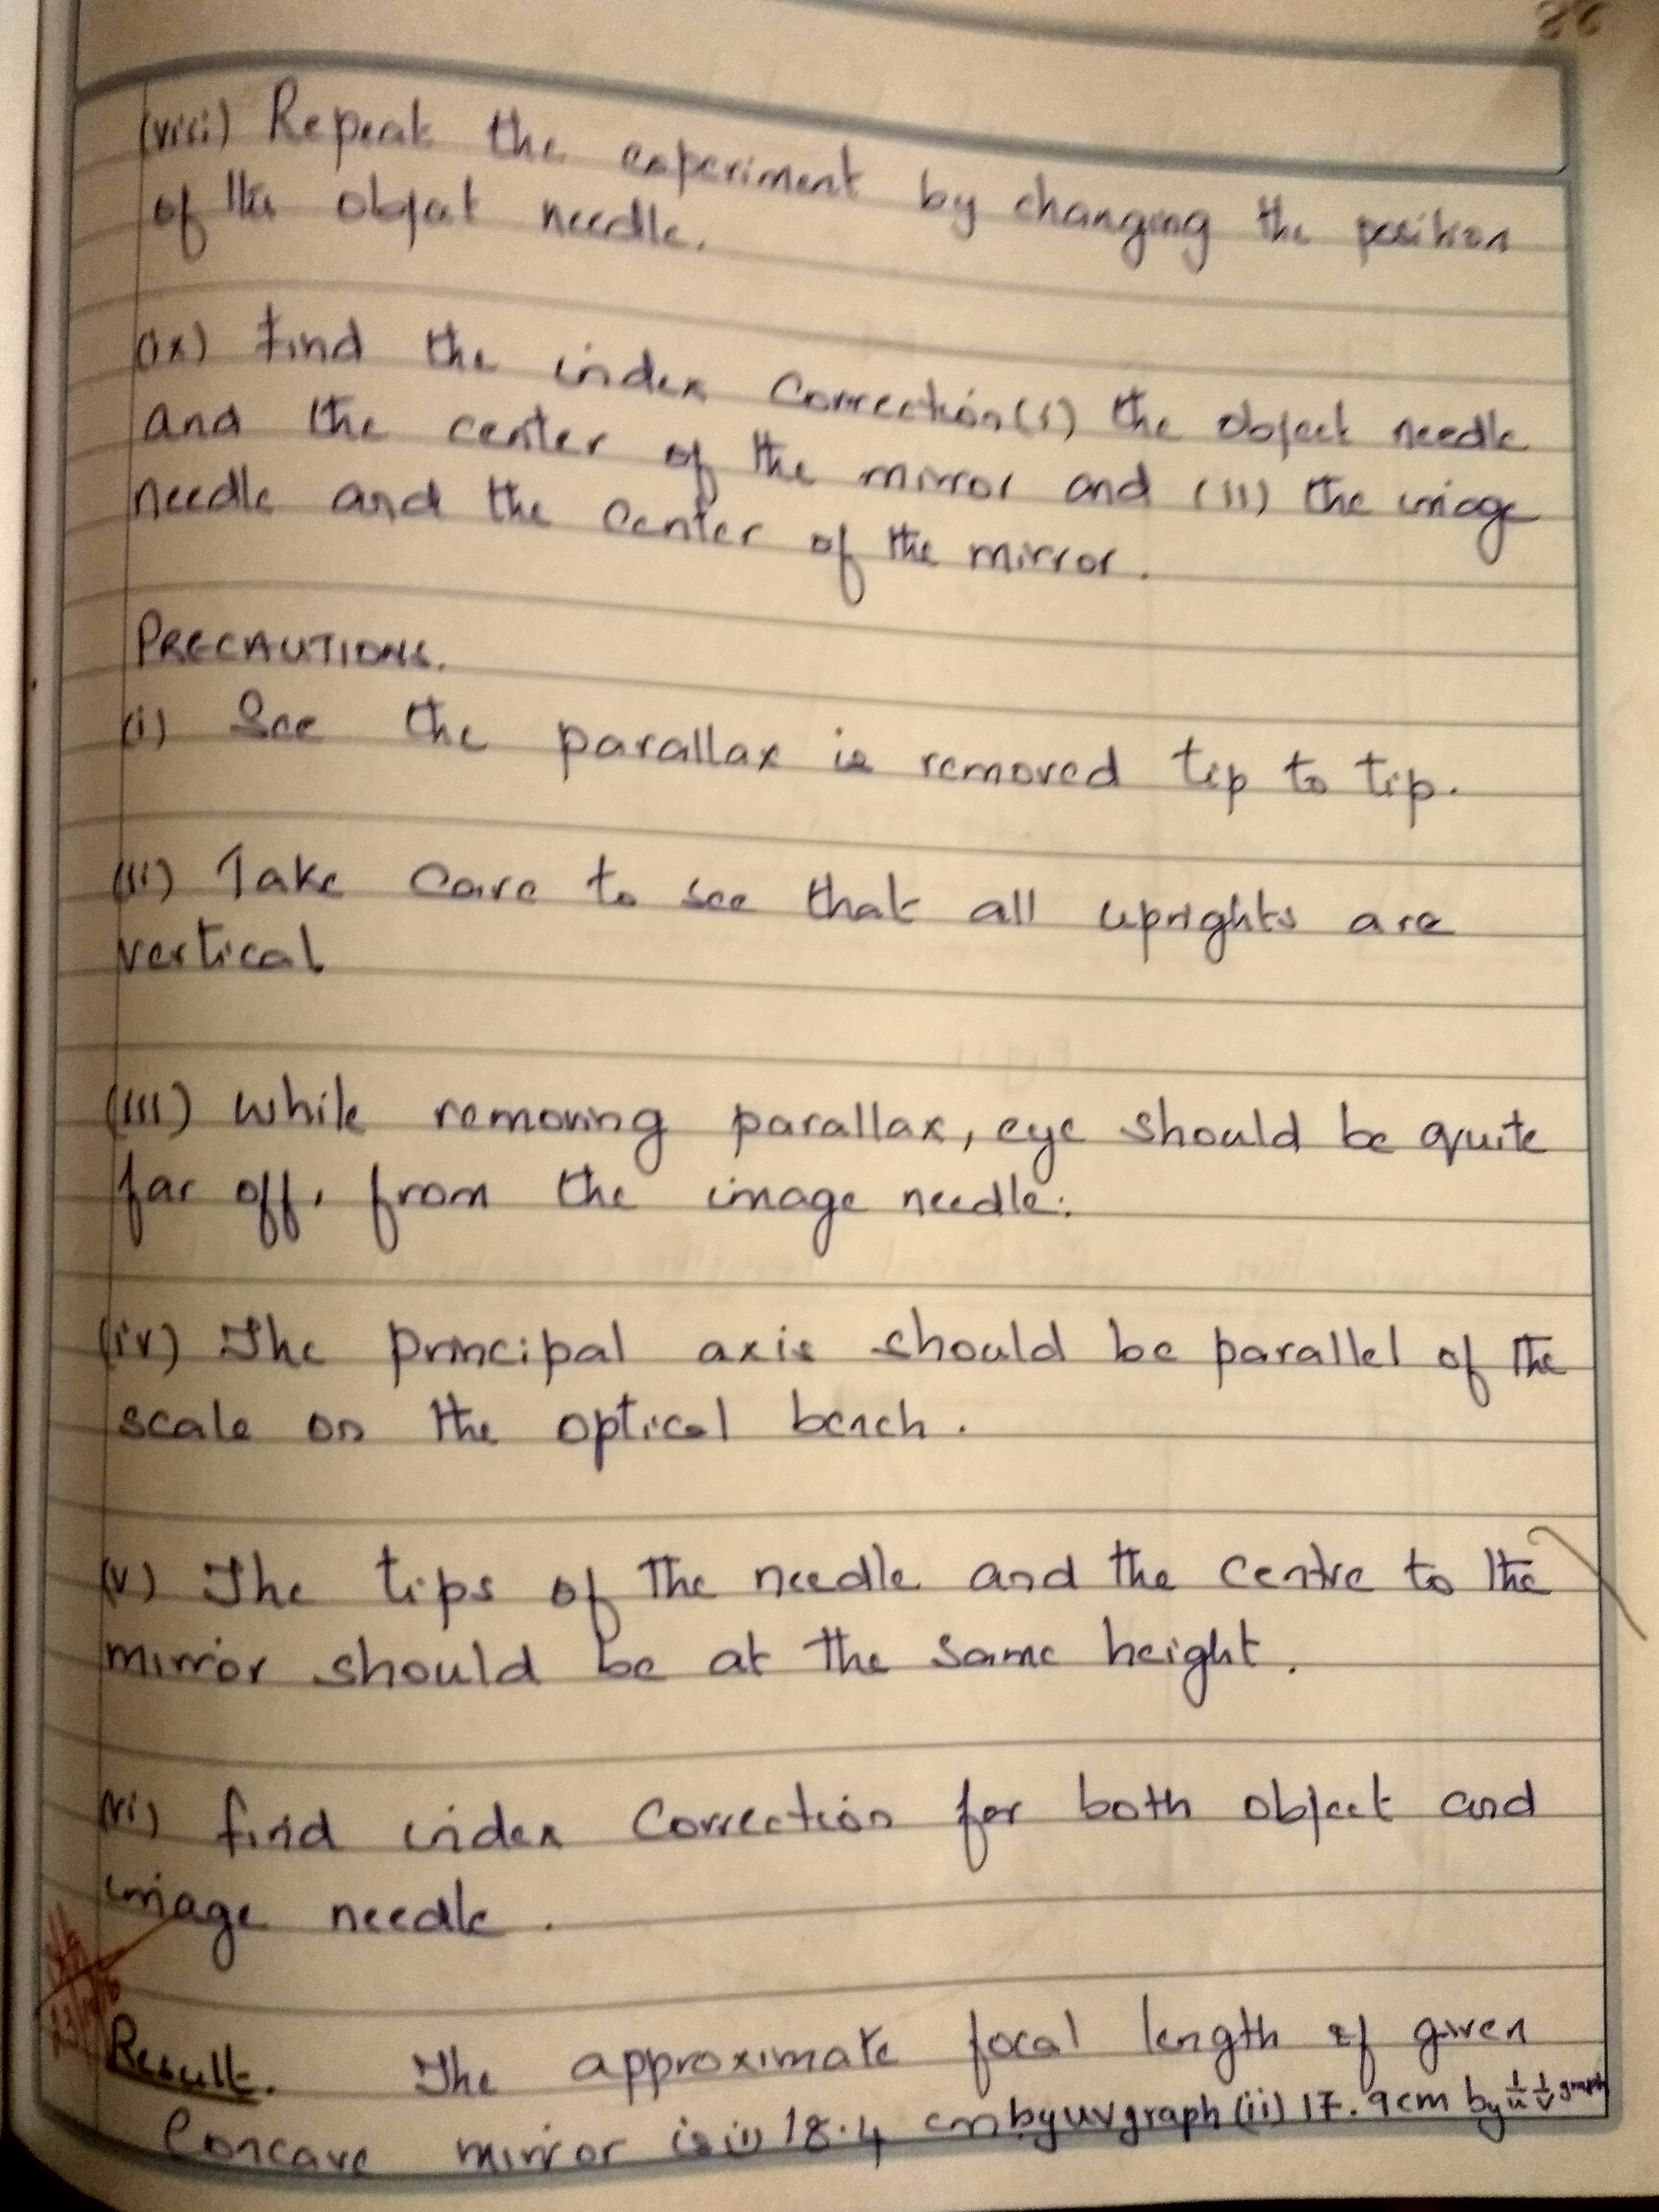 (viii) Repeat the experiment by changing the position
of the object needle.
(ix) Find the index correction (i) the object needle
and the center of the mirror and (ii) the image
needle and the center of the mirror.
PRECAUTIONS.
(i) See the parallax is removed tip to tip.
(ii) Take care to see that all uprights are
vertical
(iii) While removing parallax, eye should be quite
far off, from the image needle.
(iv) The principal axis should be parallel of the
scale on the optical bench.
(v) The tips of the needle and the centre to the
mirror should be at the same height.
(vi) find index correction for both object and
image needle.
Result. The approximate focal length of given
Concave mirror is (i) 18.4 cm by uv graph (ii) 17.9cm by 1/u 1/v graph